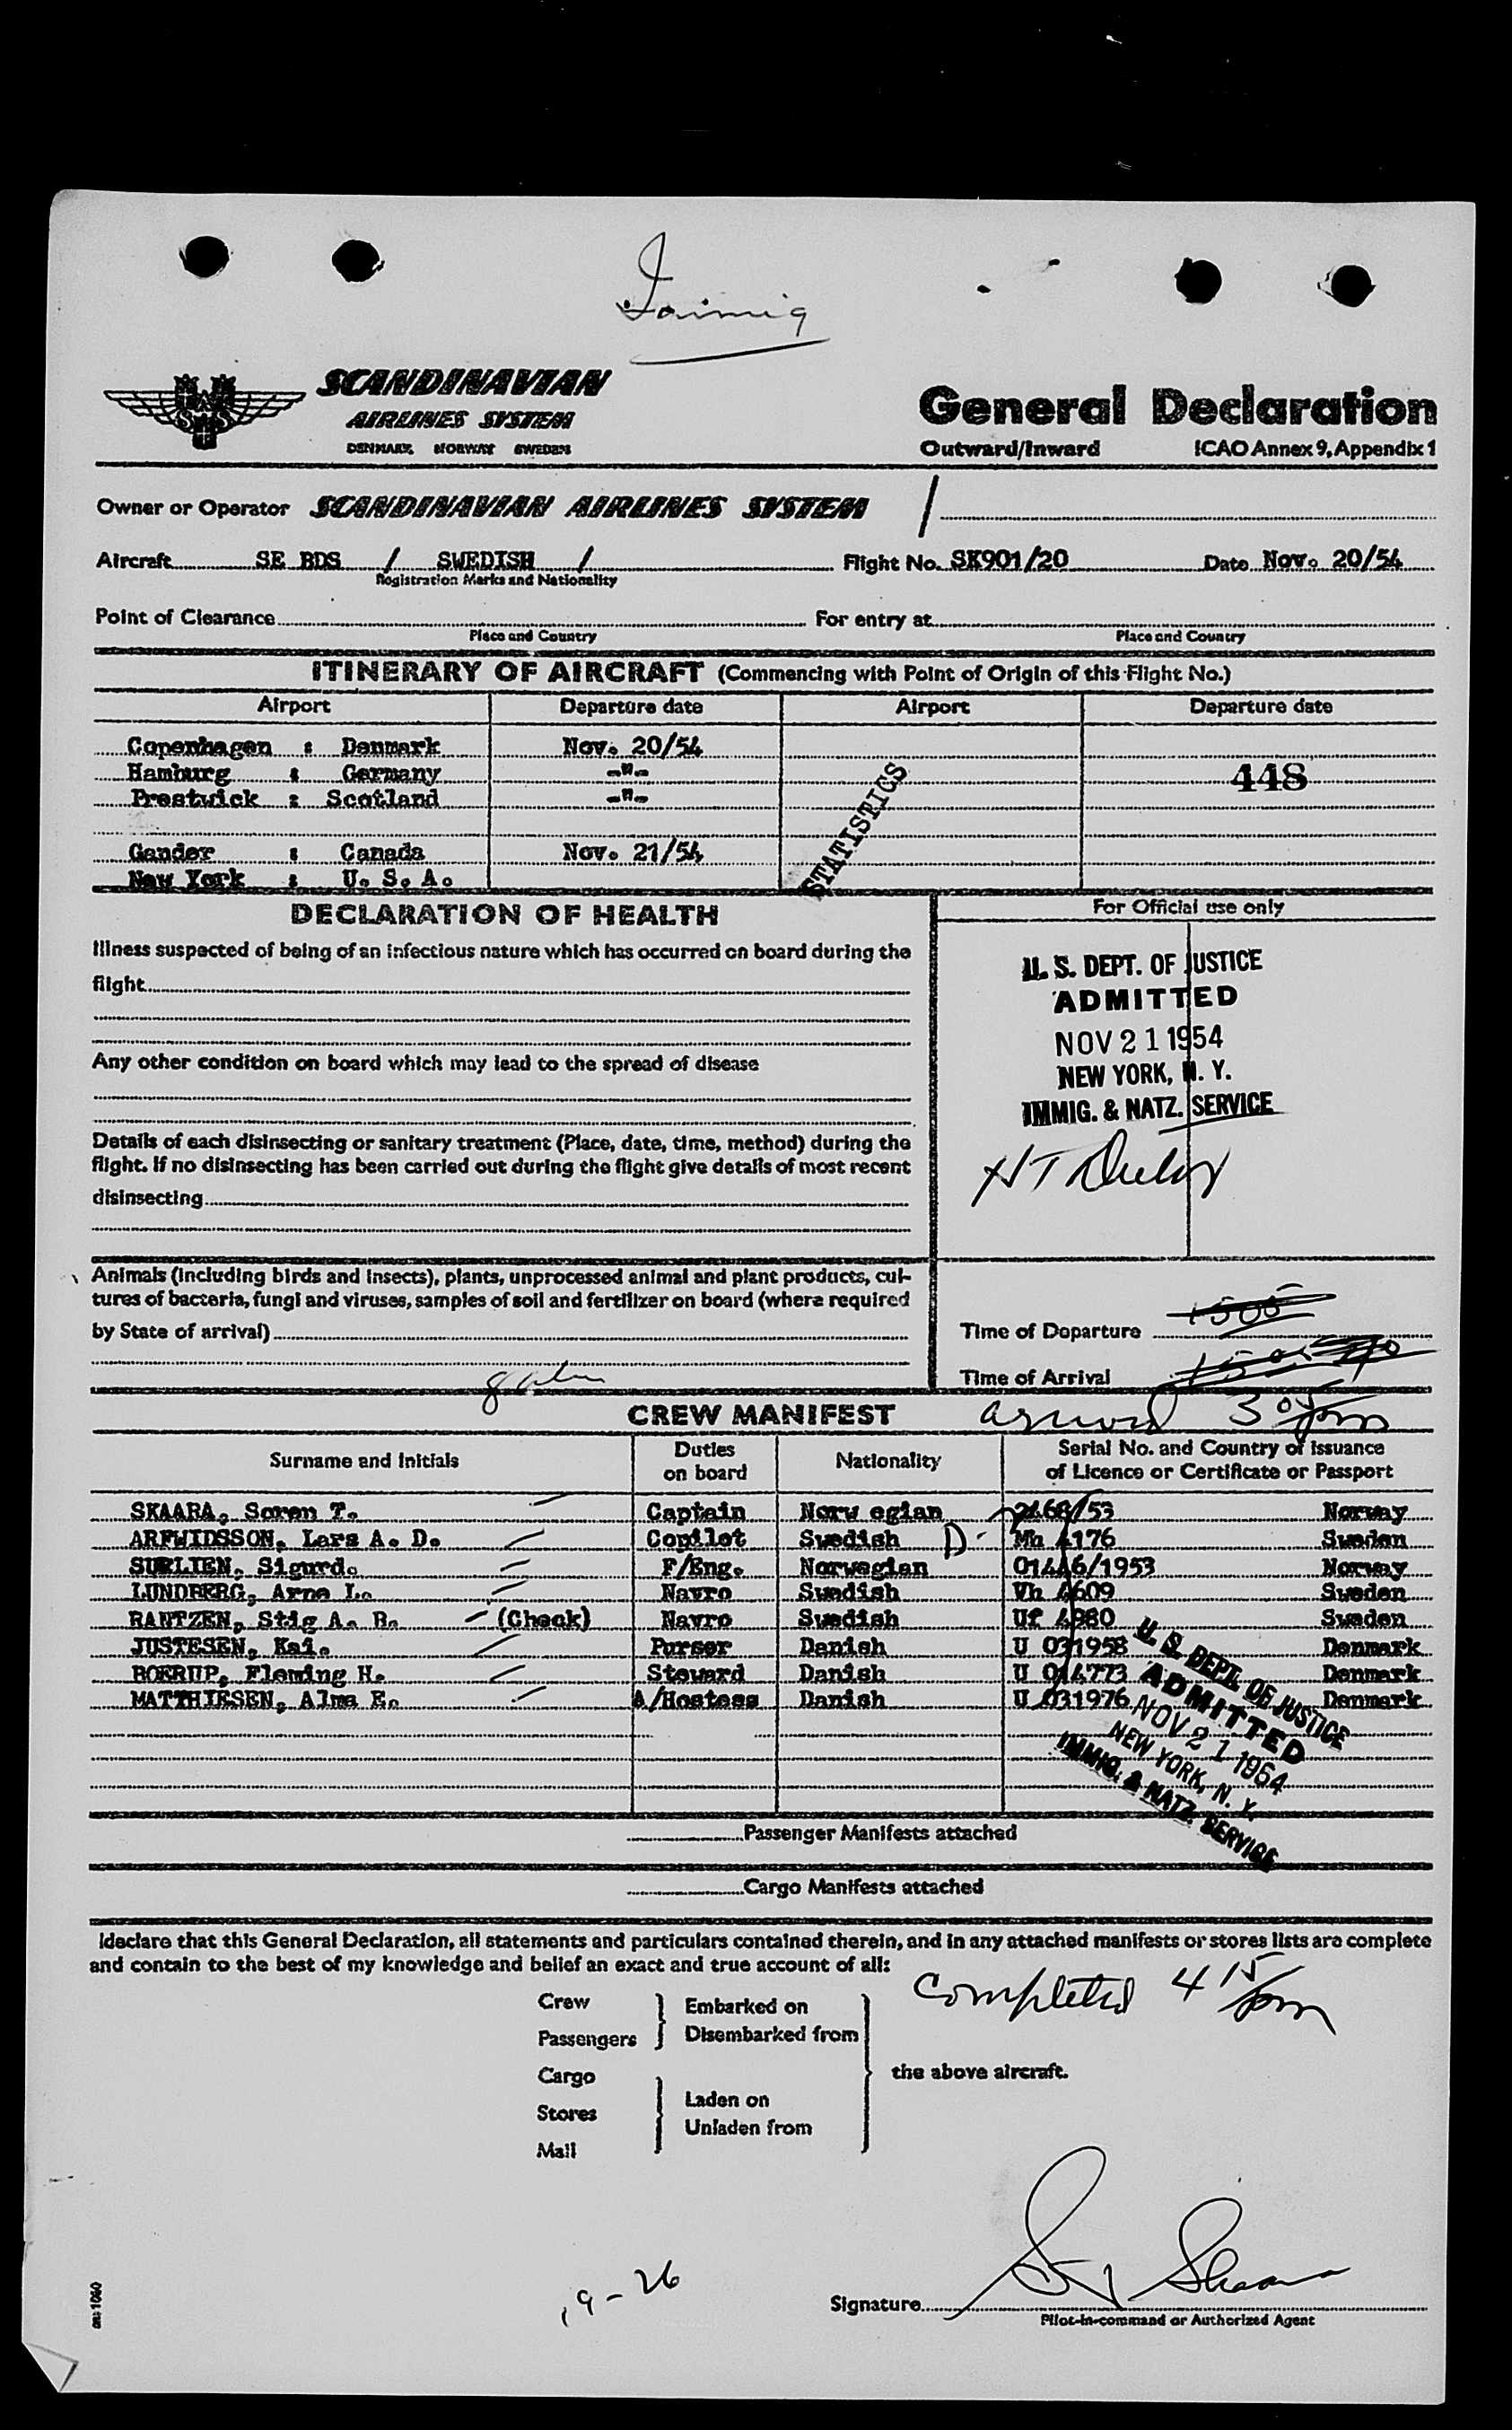 SCANDINAVIAN
AIRLINES SYSTEM
DENMARK NORWAY SWEDEN
General Declaration
Outward/Inward ICAO Annex 9, Appendix 1
Owner or Operator SCANDINAVIAN AIRLINES SYSTEM /
Aircraft SE BDS / SWEDISH / Flight No. SK901/20 Date Nov. 20/54
Registration Marks and Nationality
Point of Clearance For entry at
Place and Country Place and Country
ITINERARY OF AIRCRAFT (Commencing with Point of Origin of this Flight No.)
Airport Departure date Airport Departure date
Copenhagen : Denmark Nov. 20/54
Hamburg : Germany -"- 448
Prestwick : Scotland -"-
STATISTICS
Gander : Canada Nov. 21/54
New York : U. S. A.
DECLARATION OF HEALTH
Illness suspected of being of an infectious nature which has occurred on board during the
flight
Any other condition on board which may lead to the spread of disease
Details of each disinsecting or sanitary treatment (Place, date, time, method) during the
flight. If no disinsecting has been carried out during the flight give details of most recent
disinsecting
For Official use only
U. S. DEPT. OF JUSTICE
ADMITTED
NOV 21 1954
NEW YORK, N. Y.
IMMIG. & NATZ. SERVICE
Animals (including birds and insects), plants, unprocessed animal and plant products, cul-
tures of bacteria, fungi and viruses, samples of soil and fertilizer on board (where required
by State of arrival)
Time of Departure 1505
Time of Arrival
CREW MANIFEST 3 05 pm
Surname and Initials Duties on board Nationality Serial No. and Country of Issuance
of Licence or Certificate or Passport
SKAARA, Soren T. Captain Norw egian 2468/53 Norway
ARFWIDSSON, Lars A. D. Copilot Swedish D Mh 4176 Sweden
SURLIEN, Sigurd. F/Eng. Norwegian 01446/1953 Norway
LUNDBERG, Arne L. Navro Swedish Vh 4609 Sweden
RANTZEN, Stig A. B. (Check) Navro Swedish Uf 4980 Sweden
JUSTESEN, Kai. Purser Danish U 031958 Denmark
BOERUP, Fleming H. Steward Danish U 014773 Denmark
MATTHIESEN, Alma E. A/Hostess Danish U 031976 Denmark
U. S. DEPT. OF JUSTICE
ADMITTED
NOV 21 1954
NEW YORK, N. Y.
IMMIG. & NATZ. SERVICE
Passenger Manifests attached
Cargo Manifests attached
I declare that this General Declaration, all statements and particulars contained therein, and in any attached manifests or stores lists are complete
and contain to the best of my knowledge and belief an exact and true account of all:
Completed 4 15 pm
Crew Embarked on
Passengers Disembarked from
Cargo the above aircraft.
Stores Laden on
Unladen from
Mail
19-26
Signature
Pilot-in-command or Authorized Agent